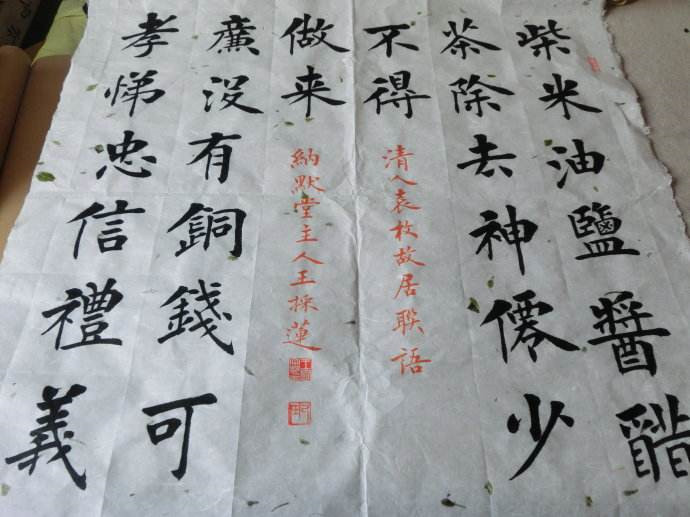 柴米油鹽醬醋
茶除去神僊少
不得
清人袁枚故居聯語
孝悌忠信禮義
廉沒有銅錢可
做来
納默堂主人王採蓮